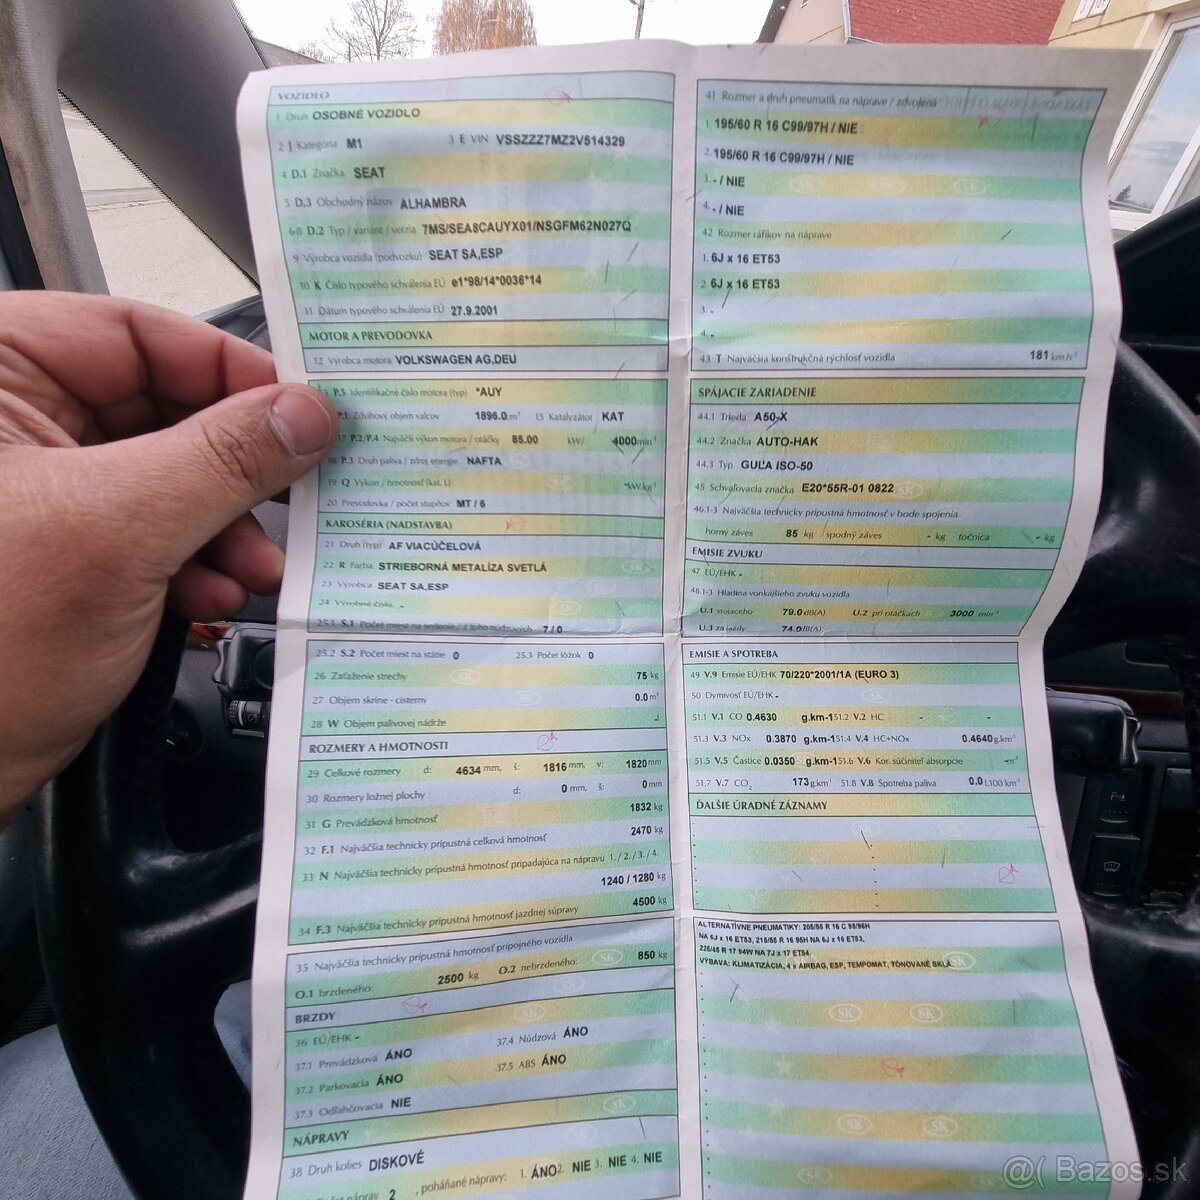 VOZIDLO
1 Druh OSOBNÉ VOZIDLO
2 J Kategória M1 3 E VIN VSSZZZ7MZ2V514329
4 D.1 Značka SEAT
5 D.3 Obchodný názov ALHAMBRA
6-8 D.2 Typ / variant / verzia 7MS/SEA8CAUYX01/NSGFM62N027Q
9 Výrobca vozidla (podvozku) SEAT SA,ESP
10 K Číslo typového schválenia EÚ e1*98/14*0036*14
11 Dátum typového schválenia EÚ 27.9.2001
MOTOR A PREVODOVKA
12 Výrobca motora VOLKSWAGEN AG,DEU
P.5 Identifikačné číslo motora (typ) *AUY
P.1 Zdvihový objem valcov 1896.0 cm³ 15 Katalyzátor KAT
17 P.2/P.4 Najväčší výkon motora / otáčky 85.00 kW/ 4000 min⁻¹
18 P.3 Druh paliva / zdroj energie NAFTA
19 Q Výkon / hmotnosť (kat. L) kW.kg⁻¹
20 Prevodovka / počet stupňov MT / 6
KAROSÉRIA (NADSTAVBA)
21 Druh (typ) AF VIACÚČELOVÁ
22 R Farba STRIEBORNÁ METALÍZA SVETLÁ
23 Výrobca SEAT SA,ESP
24 Výrobné číslo -
25.1 S.1 Počet miest na sedenie / z toho núdzových 7 / 0
25.2 S.2 Počet miest na státie 0 25.3 Počet lôžok 0
26 Zaťaženie strechy 75 kg
27 Objem skrine - cisterny 0.0 m³
28 W Objem palivovej nádrže
ROZMERY A HMOTNOSTI
29 Celkové rozmery d: 4634 mm, š: 1816 mm, v: 1820 mm
30 Rozmery ložnej plochy d: 0 mm, š: 0 mm
31 G Prevádzková hmotnosť 1832 kg
32 F.1 Najväčšia technicky prípustná celková hmotnosť 2470 kg
33 N Najväčšia technicky prípustná hmotnosť pripadajúca na nápravu 1. / 2. / 3. / 4.
1240 / 1280 kg
34 F.3 Najväčšia technicky prípustná hmotnosť jazdnej súpravy 4500 kg
35 Najväčšia technicky prípustná hmotnosť prípojného vozidla
O.1 brzdeného: 2500 kg O.2 nebrzdeného: 850 kg
BRZDY
36 EÚ/EHK - 37.4 Núdzová ÁNO
37.1 Prevádzková ÁNO 37.5 ABS ÁNO
37.2 Parkovacia ÁNO
37.3 Odľahčovacia NIE
NÁPRAVY
38 Druh kolies DISKOVÉ
náprav 2 , poháňané nápravy: 1. ÁNO 2. NIE 3. NIE 4. NIE
41 Rozmer a druh pneumatík na náprave / zdvojená
1. 195/60 R 16 C99/97H / NIE
2. 195/60 R 16 C99/97H / NIE
3. - / NIE
4. - / NIE
42 Rozmer ráfikov na náprave
1. 6J x 16 ET53
2. 6J x 16 ET53
3. -
4. -
43 T Najväčšia konštrukčná rýchlosť vozidla 181 km.h⁻¹
SPÁJACIE ZARIADENIE
44.1 Trieda A50-X
44.2 Značka AUTO-HAK
44.3 Typ GUĽA ISO-50
45 Schvaľovacia značka E20*55R-01 0822
46.1-3 Najväčšia technicky prípustná hmotnosť v bode spojenia
horný záves 85 kg /spodný záves - kg točnica - kg
EMISIE ZVUKU
47 EÚ/EHK -
48.1-3 Hladina vonkajšieho zvuku vozidla
U.1 stojaceho 79.0 dB(A) U.2 pri otáčkach 3000 min⁻¹
U.3 za jazdy 74.0 dB(A)
EMISIE A SPOTREBA
49 V.9 Emisie EÚ/EHK 70/220*2001/1A (EURO 3)
50 Dymivosť EÚ/EHK -
51.1 V.1 CO 0.4630 g.km-1 51.2 V.2 HC - -
51.3 V.3 NOx 0.3870 g.km-1 51.4 V.4 HC+NOx 0.4640 g.km⁻¹
51.5 V.5 Častice 0.0350 g.km-1 51.6 V.6 Kor. súčiniteľ absorpcie -m⁻¹
51.7 V.7 CO₂ 173 g.km⁻¹ 51.8 V.8 Spotreba paliva 0.0 l.100 km⁻¹
ĎALŠIE ÚRADNÉ ZÁZNAMY
ALTERNATÍVNE PNEUMATIKY: 205/55 R 16 C 98/96H
NA 6J x 16 ET53, 215/55 R 16 95H NA 6J x 16 ET53,
225/45 R 17 94W NA 7J x 17 ET54.
VÝBAVA: KLIMATIZÁCIA, 4 x AIRBAG, ESP, TEMPOMAT, TÓNOVANÉ SKLÁ.
@( Bazos.sk